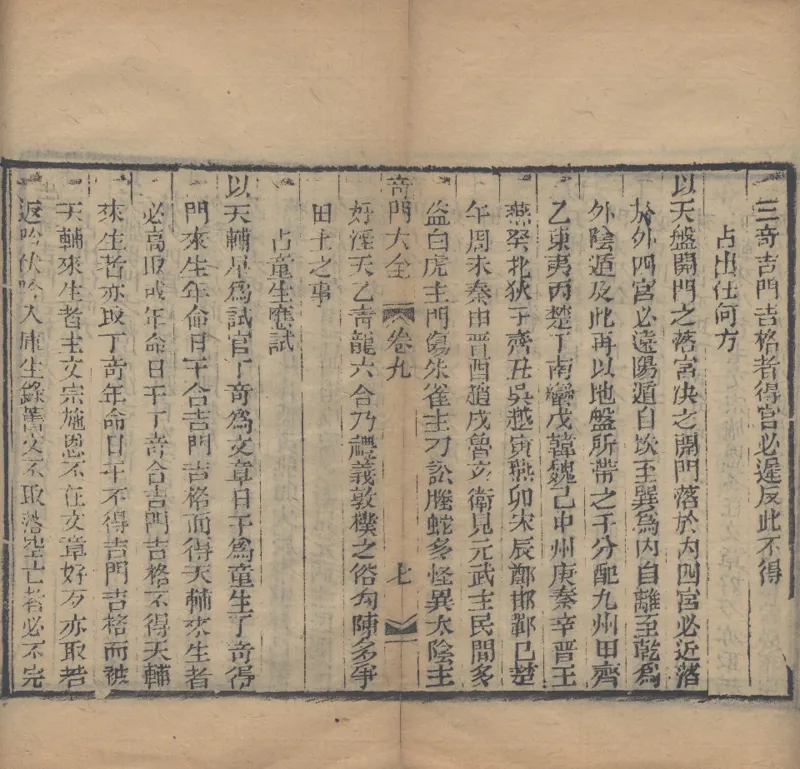 三奇吉門吉格者得官必遲反此不得
占出仕何方
以天盤開門之落宮决之開門落於內四宮必近落
於外四宮必遠陽遁自坎至巽爲內自離至乾爲
外陰遁反此再以地盤所帶之干分配九州甲齊
乙東夷丙楚丁南蠻戊韓魏己中州庚秦辛晋壬
燕癸北狄子齊丑吳越寅燕卯宋辰鄭邯鄲巳楚
午周未秦申晋酉趙戌魯亥衛見元武主民間多
盜白虎主鬥傷朱雀主刁訟螣蛇多怪異太陰主
奇門大全 卷九 七
好淫天乙青龍六合乃禮義敦樸之俗勾陳多爭
田土之事
占童生應試
以天輔星爲試官丁奇爲文章日干爲童生丁奇得
門來生年命日干合吉門吉格而得天輔來生者
必高取或年命日干丁奇合吉門吉格不得天輔
來生者亦取丁奇年命日干不得吉門吉格而被
天輔來生者主文宗施恩不在文章好歹亦取若
返吟伏吟入庫主錄舊文不取落空亡者必不完